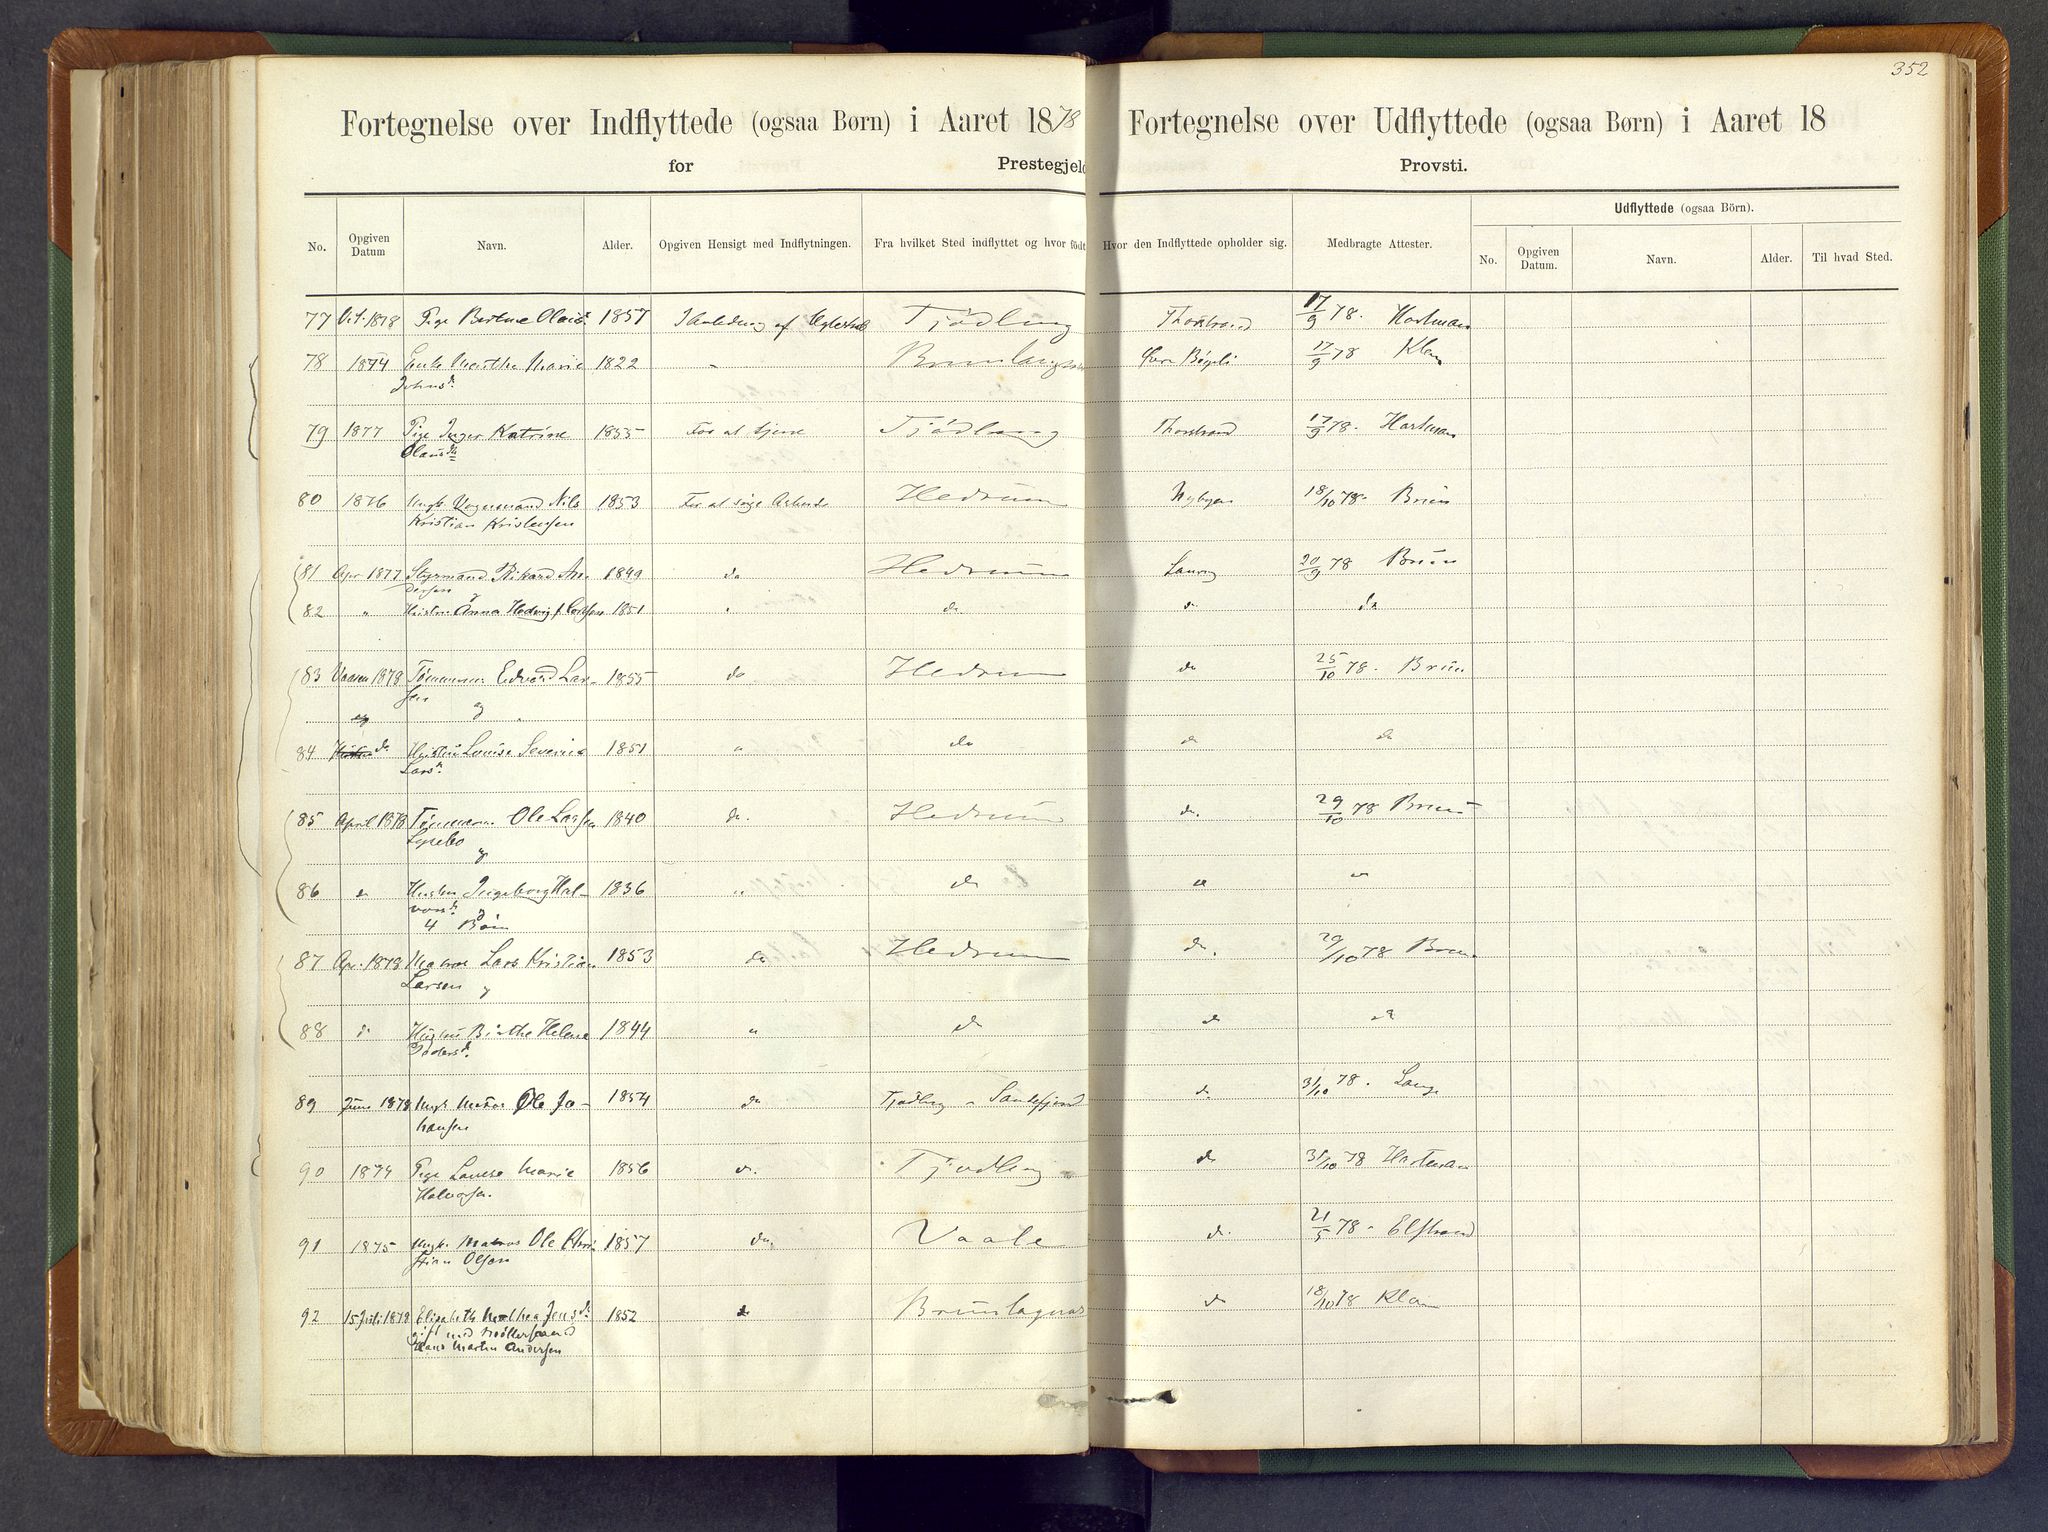 352
Fortegnelse over Indflyttede (ogsaa Børn) i Aaret 1878
Fortegnelse over Udflyttede (ogsaa Børn) i Aaret 18
for Prestegjeld
Provsti.
Udflyttede (ogsaa Børn).
No. Opgiven Datum Navn. Alder. Opgiven Hensigt med Indflytningen. Fra hvilket Sted indflyttet og hvor født Hvor den Indflyttede opholder sig. Medbragte Attester. No. Opgiven Datum. Navn. Alder. Til hvad Sted.
77 1878 Pige 1857 af Tjødling Thorstrand 17/9 78. Hartman
78 1874 Enke Marthe Marie 1822 " Brunlagnæs 17/9 78 Klem
Johnsd.
79 1877 Pige Inger Katrine 1855 For at tjene Tjødling Thorstrand 17/9 78. Hartman
Olausd.
80 1876 Ungk. Nils 1853 For at søge Arbeide Hedrum Nybyen 18/10 78. Bruun
Kristian Kristensen
81 Apr 1877 Styrmand Rikard An- 1849 do Hedrum Laurvig 20/9 78 Bruun
dersen og
82 " Hustru Anna Hedvig f. Carlsen 1851 " do do do
83 Vaaren 1878 Tømmerm. Edvard Lar- 1855 do Hedrum do 25/10 78. Bruun
sen og
84 do Hustru Louise Severine 1851 " do do do
Larsd.
85 April 1878 Tømmerm. Ole Larsen 1840 do. Hedrum do. 29/10 78 Bruun
og
86 do Hustru Ingeborg Hal- 1836 " do " "
vorsd. og
4 Børn
87 Apr. 1878 Matros Lars Kristian 1853 do Hedrum do. 29/10 78 Bruun
Larsen og
88 do Hustru Birthe Helene 1844 " do do do
Pedersd.
89 Juni 1878 Ungk. Matros Ole Jo- 1854 do Tjødling - Sandefjord do. 31/10 78. Lange
hansen
90 1874 Pige Lovise Marie 1856 do. Tjødling do 31/10 78 Hartman
Halvorsen.
91 1875 Ungk. Matros Ole Chri- 1857 do. Vaale do. 21/5 78. Elstrand
stian Olsen
92 15 Juli 1878 Elisabeth Mathea Jensd. 1852 do Brunlagnæs do 18/10 78 Klem
gift med
Hans Martin Andersen